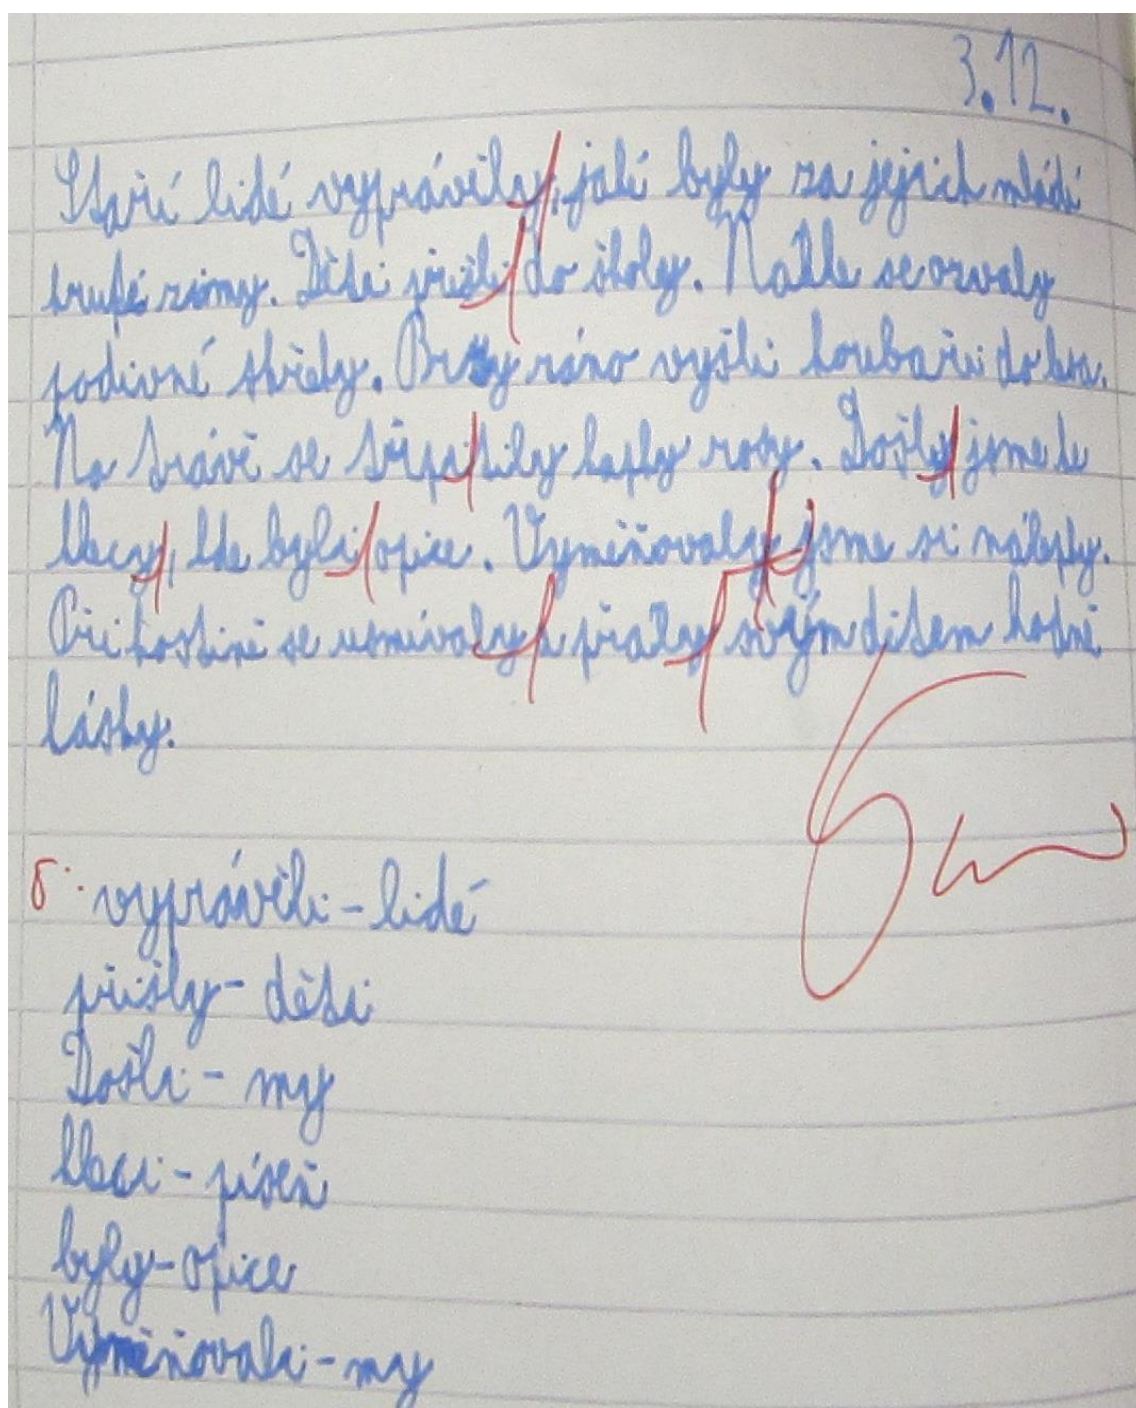 3.12.
Staří lidé vyprávěly, jaké byly za jejich mládí
truhé zimy. Děti přišli do školy. Náhle se ozvaly
podivné skřeky. Brzy ráno vyšli houbaři do lesa.
Na trávě se třpitily kapky rosy. Došly jsme ke
klecy, kde byli opice. Vyměňovaly jsme si nálepky.
Při hostině se usmívaly a přály svým dětem hodně
lásky.
vyprávěli - lidé
přišly - děti
Došli - my
kleci - píseň
byly - opice
Vyměňovali - my